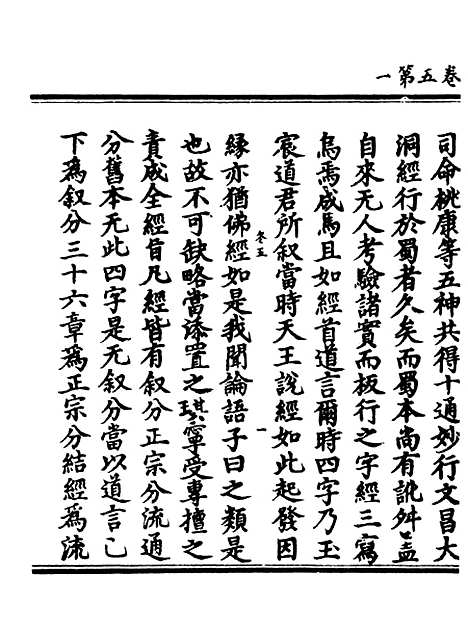 卷五第一
司命桃康等五神共得十通妙行文昌大
洞經行於蜀者久矣而蜀本尚有訛舛盖
自來无人考驗諸實而板行之字經三寫
烏焉成馬且如經首道言爾時四字乃玉
宸道君所叙當時天王說經如此起發因
緣亦猶佛經如是我聞論語子曰之類是
冬五
一
也故不可缺略當添置之琪寧受專擅之
責成全經旨凡經皆有叙分正宗分流通
分舊本无此四字是无叙分當以道言已
下為叙分三十六章為正宗分結經為流